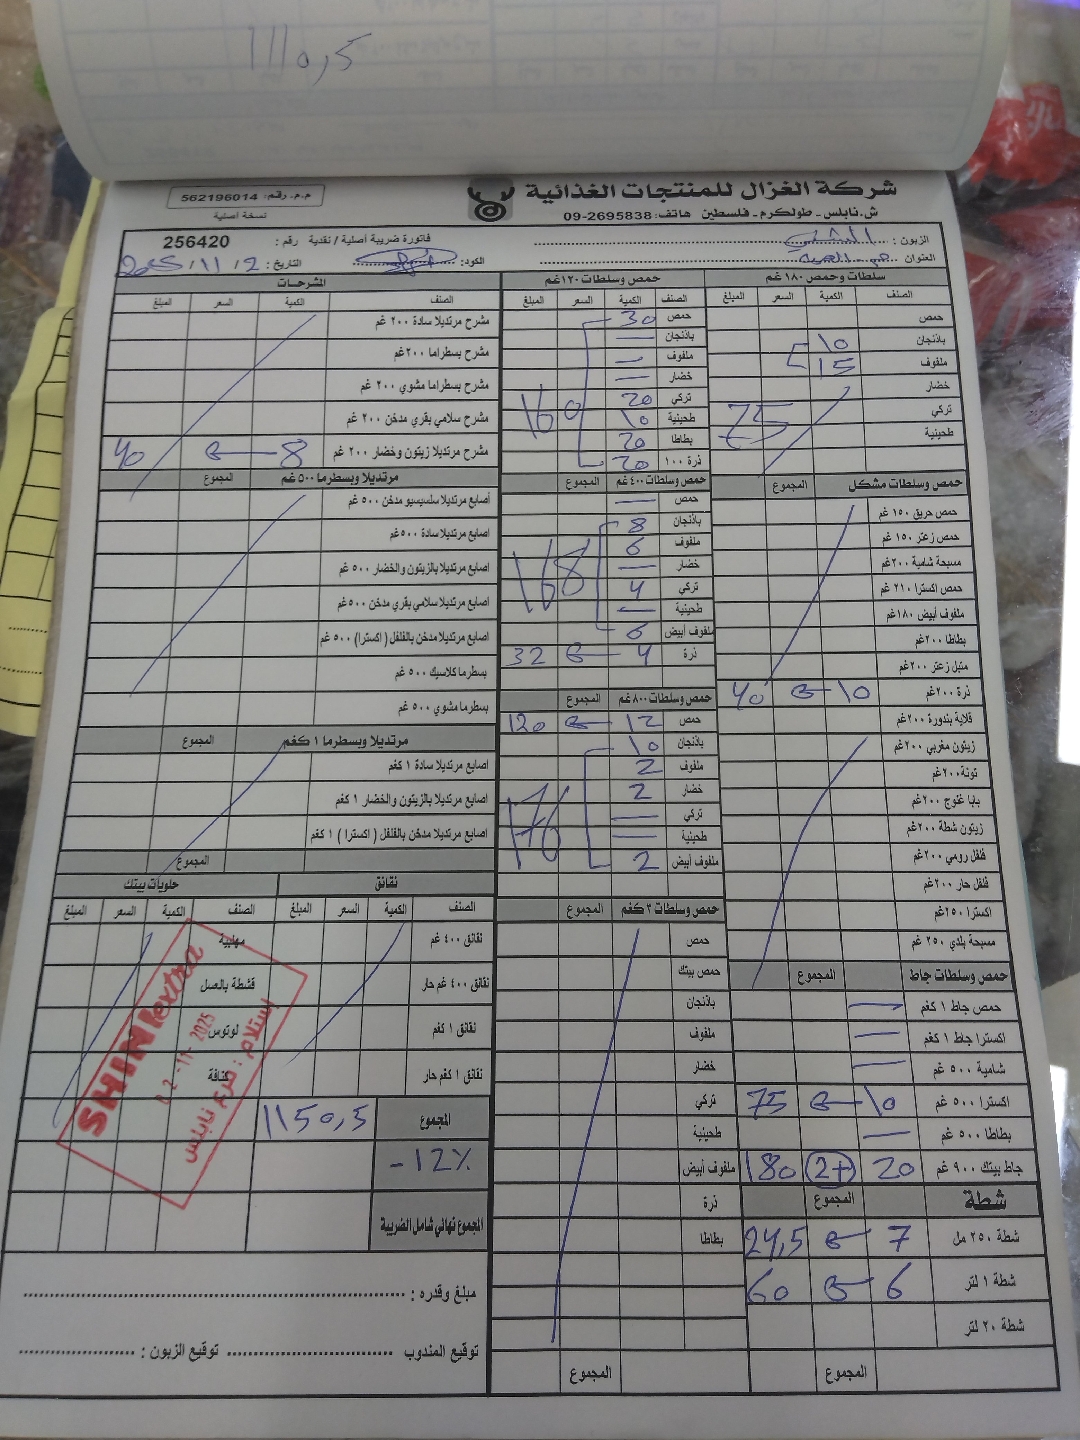 1110,5
شركة الغزال للمنتجات الغذائية
م.م. رقم: 562196014
ش.نابلس - طولكرم - فلسطين هاتف: 2695838-09
نسخة أصلية
الزبون:
فاتورة ضريبة أصلية / نقدية رقم: 256420
العنوان
الكود:
التاريخ: 2 / 11 / 2025
سلطات وحمص ١٨٠ غم
الصنف الكمية السعر المبلغ
حمص
باذنجان 10
ملفوف 15
خضار
تركي 75
طحينية
حمص وسلطات مشكل المجموع
حمص حريق ١٥٠ غم
حمص زعتر ١٥٠ غم
مسبحة شامية ٢٠٠غم
حمص اكسترا ٢١٠ غم
ملفوف أبيض ١٨٠غم
بطاطا ٢٠٠غم
متبل زعتر ٢٠٠غم
ذرة ٢٠٠غم 10 40
قلاية بندورة ٢٠٠غم
زيتون مغربي ٢٠٠غم
تونة ٢٠٠غم
بابا غنوج ٢٠٠غم
زيتون شطة ٢٠٠غم
فلفل رومي ٢٠٠غم
فلفل حار ٢٠٠غم
اكسترا ٢٥٠غم
مسبحة بلدي ٢٥٠ غم
حمص وسلطات جاط المجموع
حمص جاط ١ كغم —
اكسترا جاط ١ كغم —
شامية ٥٠٠ غم —
اكسترا ٥٠٠ غم 10 75
بطاطا ٥٠٠ غم —
جاط بيتك ٩٠٠ غم 20 2+ 180
شطة المجموع
شطة ٢٥٠ مل 7 24,5
شطة ١ لتر 6 60
شطة ٢٠ لتر
المجموع
حمص وسلطات ١٢٠غم
الصنف الكمية السعر المبلغ
حمص 30
باذنجان —
ملفوف —
خضار —
تركي 20
طحينية 10 160
بطاطا 20
ذرة ١٠٠ 20
حمص وسلطات ٤٠٠ غم المجموع
حمص —
باذنجان 8
ملفوف 6
خضار — 168
تركي 4
طحينية —
ملفوف أبيض 6
ذرة 4 32
حمص وسلطات ٨٠٠ غم المجموع
حمص 12 120
باذنجان 10
ملفوف 2
خضار 2
تركي — 176
طحينية —
ملفوف أبيض 2
حمص وسلطات ٣ كغم المجموع
حمص
حمص بيتك
باذنجان
ملفوف
خضار
تركي
طحينية
ملفوف أبيض
ذرة
بطاطا
المجموع
المشرحات
الصنف الكمية السعر المبلغ
مشرح مرتديلا سادة ٢٠٠ غم
مشرح بسطراما ٢٠٠غم
مشرح بسطراما مشوي ٢٠٠ غم
مشرح سلامي بقري مدخن ٢٠٠ غم
مشرح مرتديلا زيتون وخضار ٢٠٠ غم 8 40
مرتديلا وبسطرما ٥٠٠ غم المجموع
أصابع مرتديلا سلسيسيو مدخن ٥٠٠ غم
اصابع مرتديلا سادة ٥٠٠غم
اصابع مرتديلا بالزيتون والخضار ٥٠٠ غم
اصابع مرتديلا سلامي بقري مدخن ٥٠٠غم
اصابع مرتديلا مدخن بالفلفل ( اكسترا ) ٥٠٠ غم
بسطرما كلاسيك ٥٠٠ غم
بسطرما مشوي ٥٠٠ غم
مرتديلا وبسطرما ١ كغم المجموع
اصابع مرتديلا سادة ١ كغم
اصابع مرتديلا بالزيتون والخضار ١ كغم
اصابع مرتديلا مدخن بالفلفل ( اكسترا ) ١ كغم
المجموع
نقانق
الصنف الكمية السعر المبلغ
نقانق ٤٠٠ غم
نقانق ٤٠٠ غم حار
نقانق ١ كغم
نقانق ١ كغم حار
حلويات بيتك
الصنف الكمية السعر المبلغ
مهلبية
قشطة بالعسل
لوتوس
كنافة
SHINI extra
02-11-2025
استلام: فرع نابلس
المجموع 1150,5
-12%
المجموع نهائي شامل الضريبة
مبلغ وقدره:
توقيع المندوب توقيع الزبون: